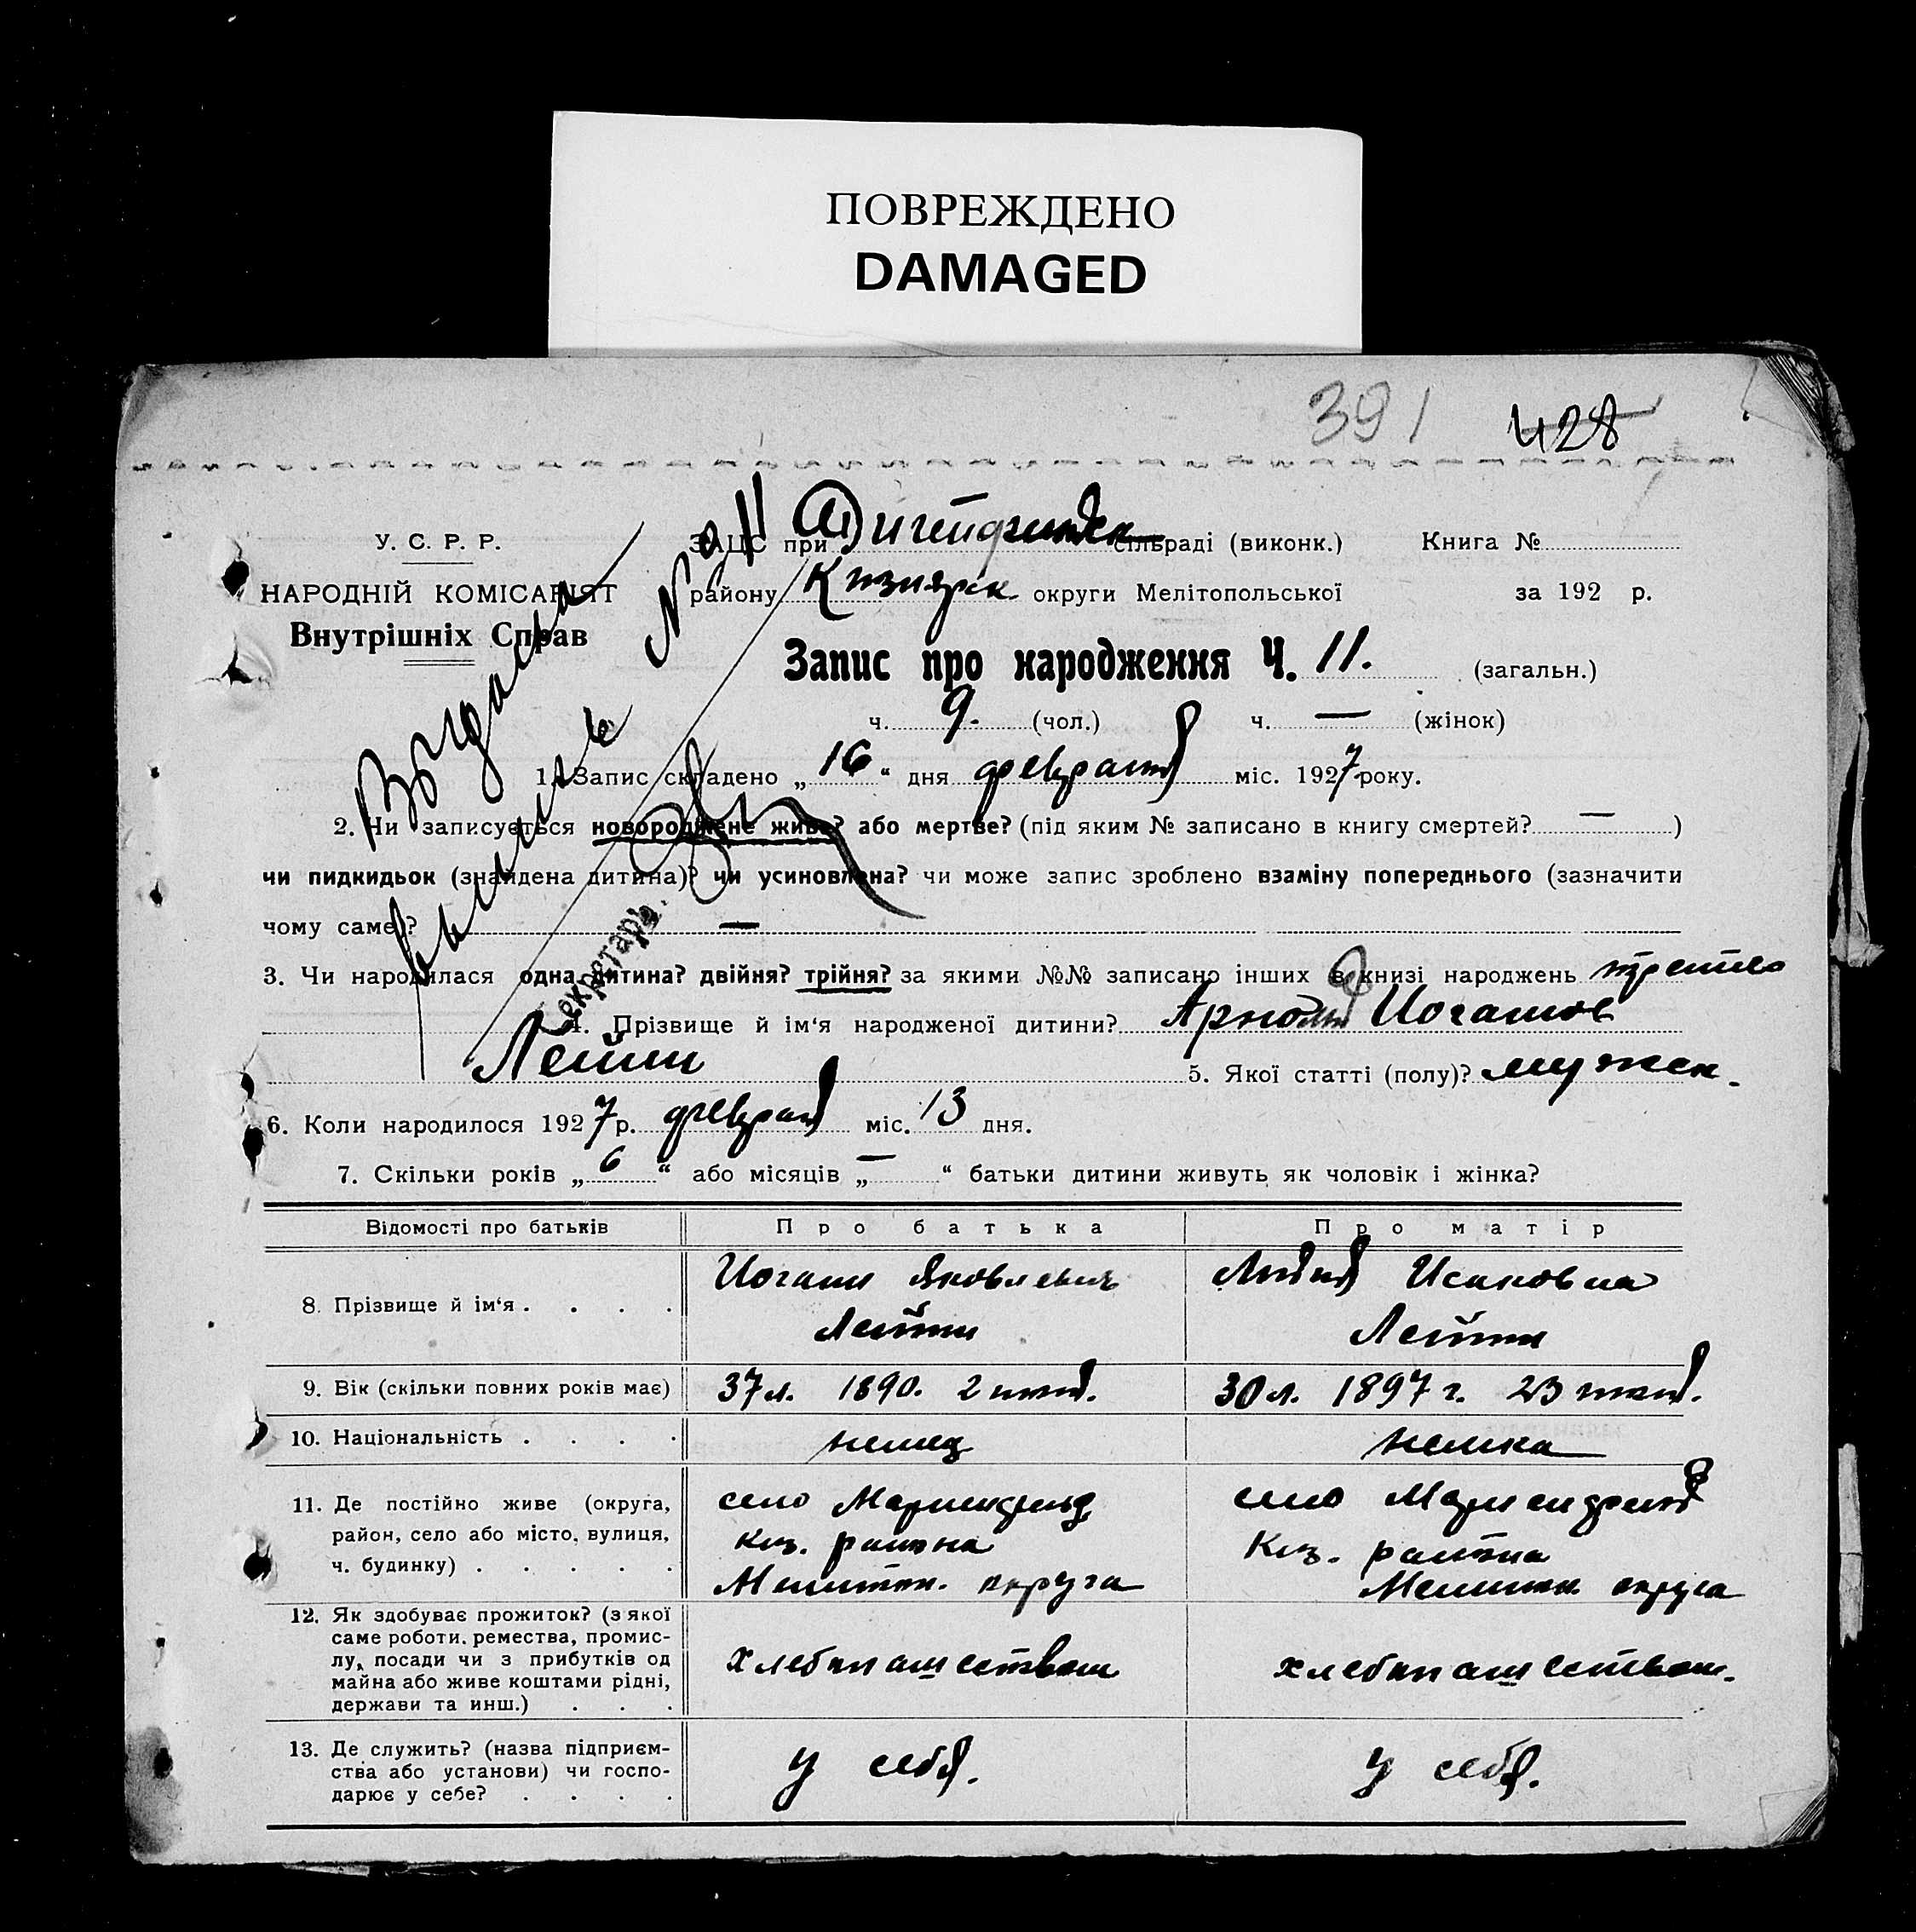 ПОВРЕЖДЕНО
DAMAGED
391 428
У. С. Р. Р.
НАРОДНІЙ КОМІСАРІЯТ
Внутрішніх Справ
Выдана
выпись
№ 11
Секретарь
ЗАЦС при сільраді (виконк.) Книга №
району Кизиярск. округи Мелітопольської за 192 р.
Запис про народження Ч. 11. (загальн.)
ч. 9. (чол.) ч. — (жінок)
1. Запис складено „16“ дня февраля міс. 1927 року.
2. Чи записується новороджене живе? або мертве? (під яким № записано в книгу смертей? — )
чи пидкидьок (знайдена дитина)? чи усиновлена? чи може запис зроблено взаміну попереднього (зазначити
чому саме)? —
3. Чи народилася одна дитина? двійня? трійня? за якими №№ записано інших в книзі народжень
4. Прізвище й ім‘я народженої дитини? Арнольд Иоганов
5. Якої статті (полу)? мужск.
6. Коли народилося 1927 р. февраля міс. 13 дня.
7. Скільки років „6“ або місяців „—“ батьки дитини живуть як чоловік і жінка?
Відомості про батьків Про батька Про матір
8. Прізвище й ім‘я . . . . Иоганн Яковлевич Лидия Исаковна
9. Вік (скільки повних років має) 37 л. 1890. 2 30 л. 1897 г. 23
10. Національність . . . . немец немка
11. Де постійно живе (округа, район, село або місто, вулиця, ч. будинку) . . . . . село Мариенфельд село Мариенфельд
Киз. района Киз. района
Мелитоп. округа Мелитоп. округа
12. Як здобуває прожиток? (з якої саме роботи, ремества, промислу, посади чи з прибутків од майна або живе коштами рідні, держави та инш.) . . . хлебопашеством хлебопашеством.
13. Де служить? (назва підприємства або установи) чи господарює у себе? . . . . у себя. у себя.